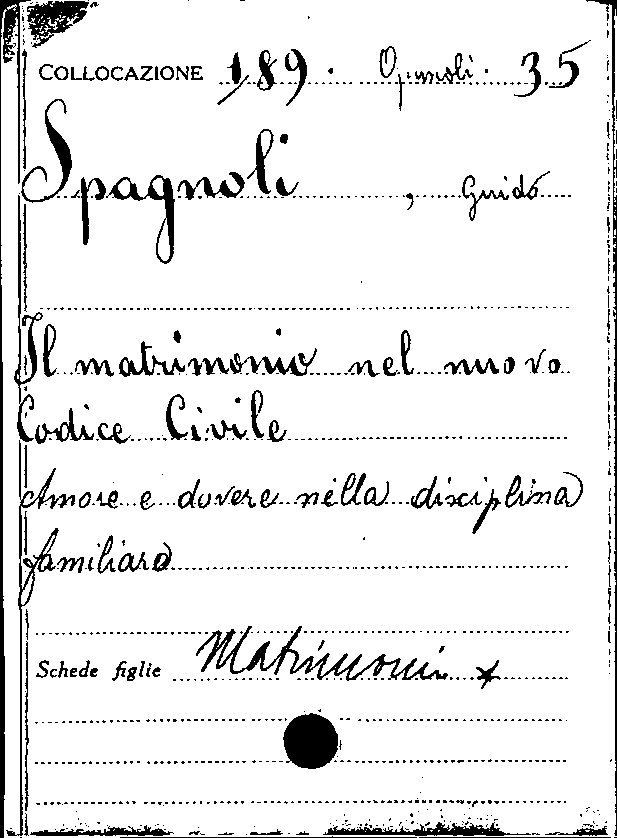 COLLOCAZIONE 189. Opuscoli. 35
Spagnoli, Guido
Il matrimonio nel nuovo
Codice Civile
Amore e dovere nella disciplina
familiare
Schede figlie Matrimoni